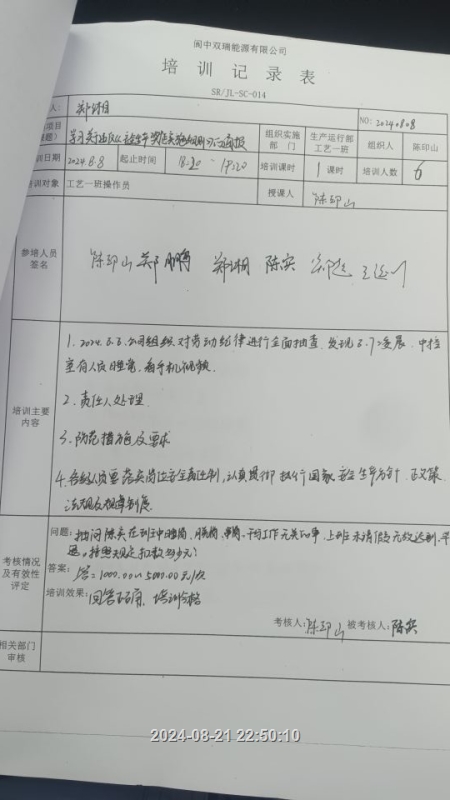 阆中双瑞能源有限公司
培训记录表
SR/JL-SC-014
人: 郑湘
NO: 20240808
项目
题)
组织实施部门
生产运行部工艺一班
组织人
陈印山
训日期
2024.8.8
起止时间
18:20 - 19:20
培训课时
1课时
培训人数
6
培训对象
工艺一班操作员
授课人
陈印山
参培人员签名
陈印山 郑鹏 郑湘 陈实
培训主要内容
1. 2024.8.3.公司组织对劳动纪律进行全面抽查, 发现 中控
室有人员睡觉、看手机视频。
2. 责任人处理.
3. 防范措施及要求
4. 各级人员要落实岗位安全责任制, 认真贯彻执行国家安全生产方针、政策、
法规及规章制度
考核情况及有效性评定
问题: 请问陈实在班中睡岗、脱岗、串岗、干与工作无关的事, 上班未请假无故迟到、早
退, 按照规定扣款多少元?
答案: 答: 1000.00~5000.00元/次
培训效果: 回答正确, 培训合格
考核人: 陈印山 被考核人: 陈实
相关部门审核
2024-08-21 22:50:10